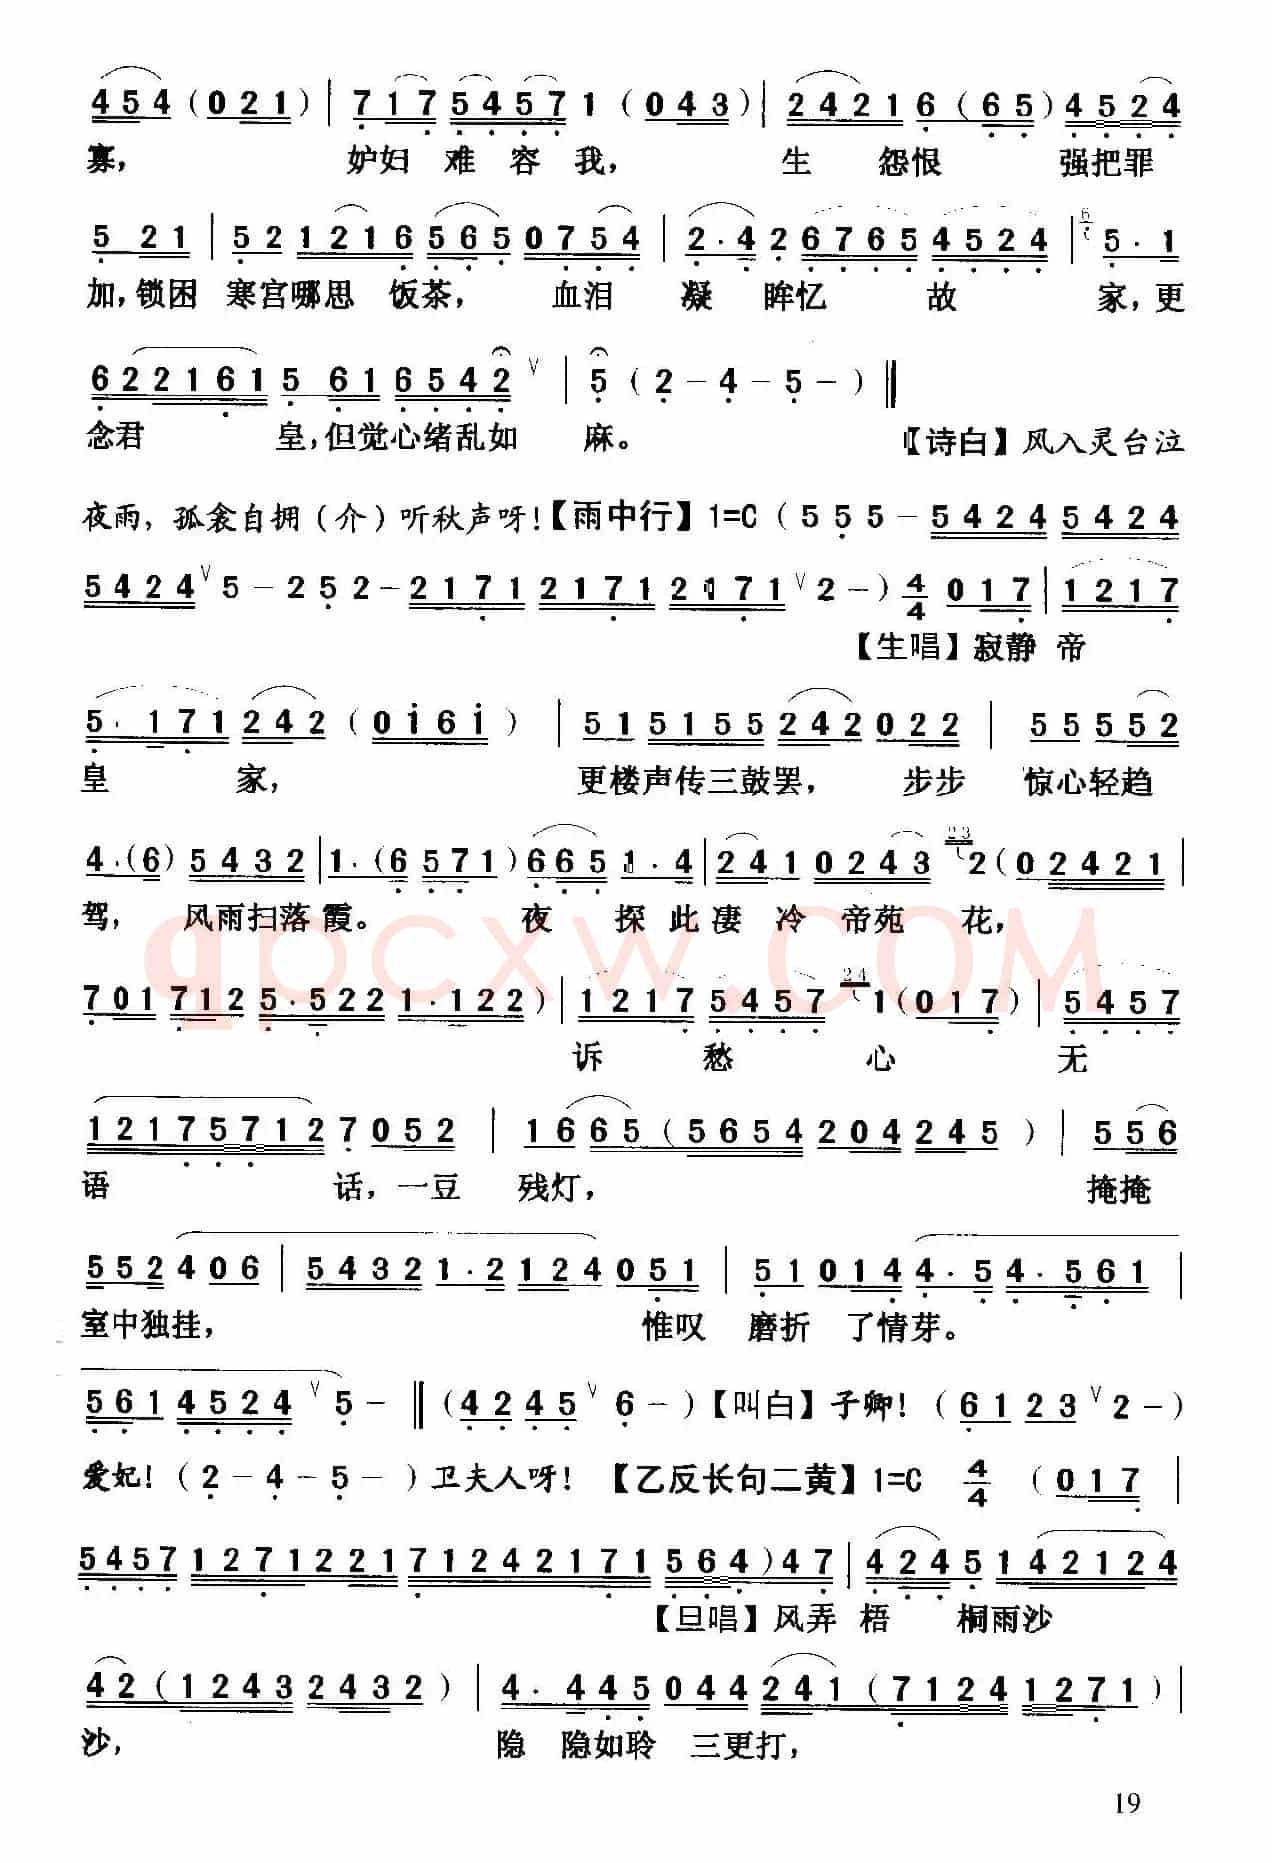 4 5 4 ( 0 2 1 ) | 7 1 7 5 4 5 7 1 ( 0 4 3 ) | 2 4 2 1 6 ( 6 5 ) 4 5 2 4
寡， 妒妇 难 容 我， 生 怨恨 强把罪
5 2 1 | 5 2 1 2 1 6 5 6 5 0 7 5 4 | 2 · 4 2 6 7 6 5 4 5 2 4 | 6 5 · 1
加，锁困 寒宫哪思 饭茶， 血泪 凝 眸忆 故 家，更
6 2 2 1 6 1 5 6 1 6 5 4 2 ∨ | 5 ( 2 – 4 – 5 – ) ‖
念君 皇，但觉心绪乱如 麻。 【诗白】风入灵台泣
夜雨，孤衾自拥（介）听秋声呀！【雨中行】1=C ( 5 5 5 – 5 4 2 4 5 4 2 4
5 4 2 4 ∨ 5 – 2 5 2 – 2 1 7 1 2 1 7 1 2 1 7 1 ∨ 2 – ) 4/4 0 1 7 | 1 2 1 7
【生唱】寂静 帝
5 · 1 7 1 2 4 2 ( 0 1 6 1 ) | 5 1 5 1 5 5 2 4 2 0 2 2 | 5 5 5 5 2
皇 家， 更楼声传三鼓罢， 步步 惊心轻趋
4 · ( 6 ) 5 4 3 2 | 1 · ( 6 5 7 1 ) 6 6 5 1 · 4 | 2 4 1 0 2 4 3 23 2 ( 0 2 4 2 1 |
驾， 风雨扫落霞。 夜 探 此凄 冷 帝苑 花，
qpcxw.COM
7 0 1 7 1 2 5 · 5 2 2 1 · 1 2 2 ) | 1 2 1 7 5 4 5 7 24 1 ( 0 1 7 ) | 5 4 5 7
诉 愁 心 无
1 2 1 7 5 7 1 2 7 0 5 2 | 1 6 6 5 ( 5 6 5 4 2 0 4 2 4 5 ) | 5 5 6
语 话，一豆 残灯， 掩掩
5 5 2 4 0 6 | 5 4 3 2 1 · 2 1 2 4 0 5 1 | 5 1 0 1 4 4 · 5 4 · 5 6 1 |
室中独挂， 惟叹 磨折 了情芽。
5 6 1 4 5 2 4 ∨ 5 – ‖ ( 4 2 4 5 ∨ 6 – ) 【叫白】子卿！ ( 6 1 2 3 ∨ 2 – )
爱妃！ ( 2 – 4 – 5 – ) 卫夫人呀！ 【乙反长句二黄】1=C 4/4 ( 0 1 7 |
5 4 5 7 1 2 7 1 2 2 1 7 1 2 4 2 1 7 1 5 6 4 ) 4 7 | 4 2 4 5 1 4 2 1 2 4
【旦唱】风弄 梧 桐雨沙
4 2 ( 1 2 4 3 2 4 3 2 ) | 4 · 4 4 5 0 4 4 2 4 1 ( 7 1 2 4 1 2 7 1 ) |
沙， 隐 隐如聆 三更打，
19